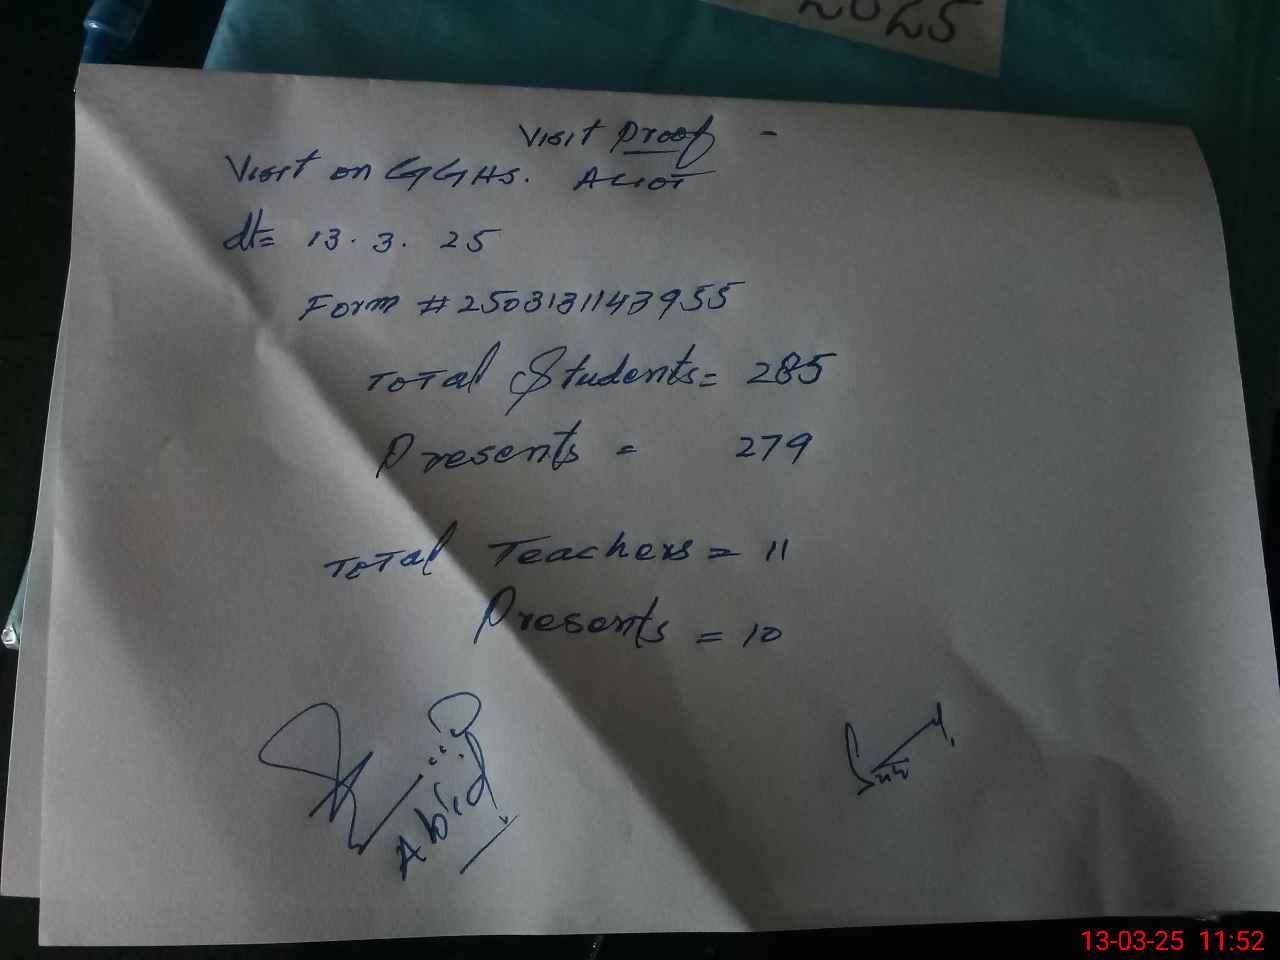 2025
Visit proof -
Visit on GGHS. ALIOT
dt= 13. 3. 25
Form # 2503131143955
Total Students= 285
Presents = 279
Total Teachers = 11
Presents = 10
Abid
13-03-25 11:52